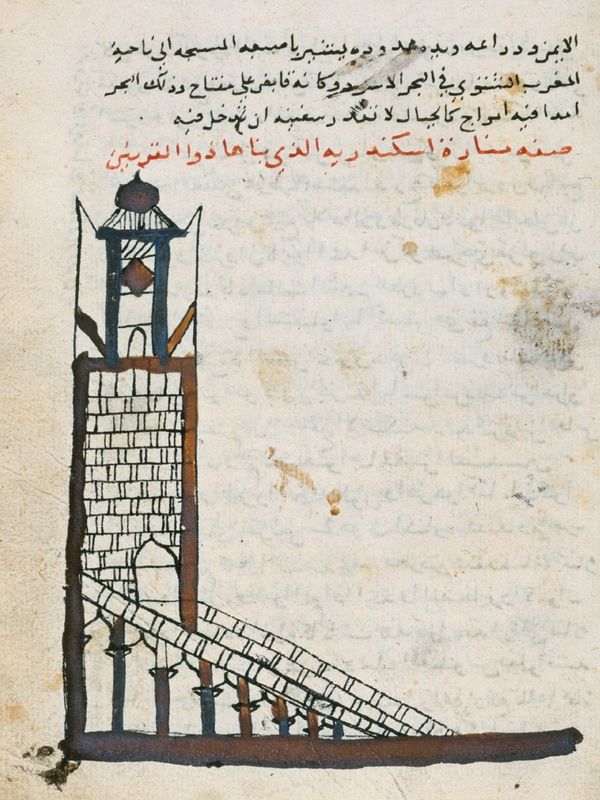 الايمن ودراعه ويده ممدوده يشير باصبعه المسبحه الى ناحية
المغرب الشتوي في البحر الاسود وكانه قابض على مفتاح وذلك البحر
ابدا فيه امواج كالجبال لا تقدر سفينه ان تدخل فيه
صفه منارة اسكندريه الذي بناها ذوا القرنين